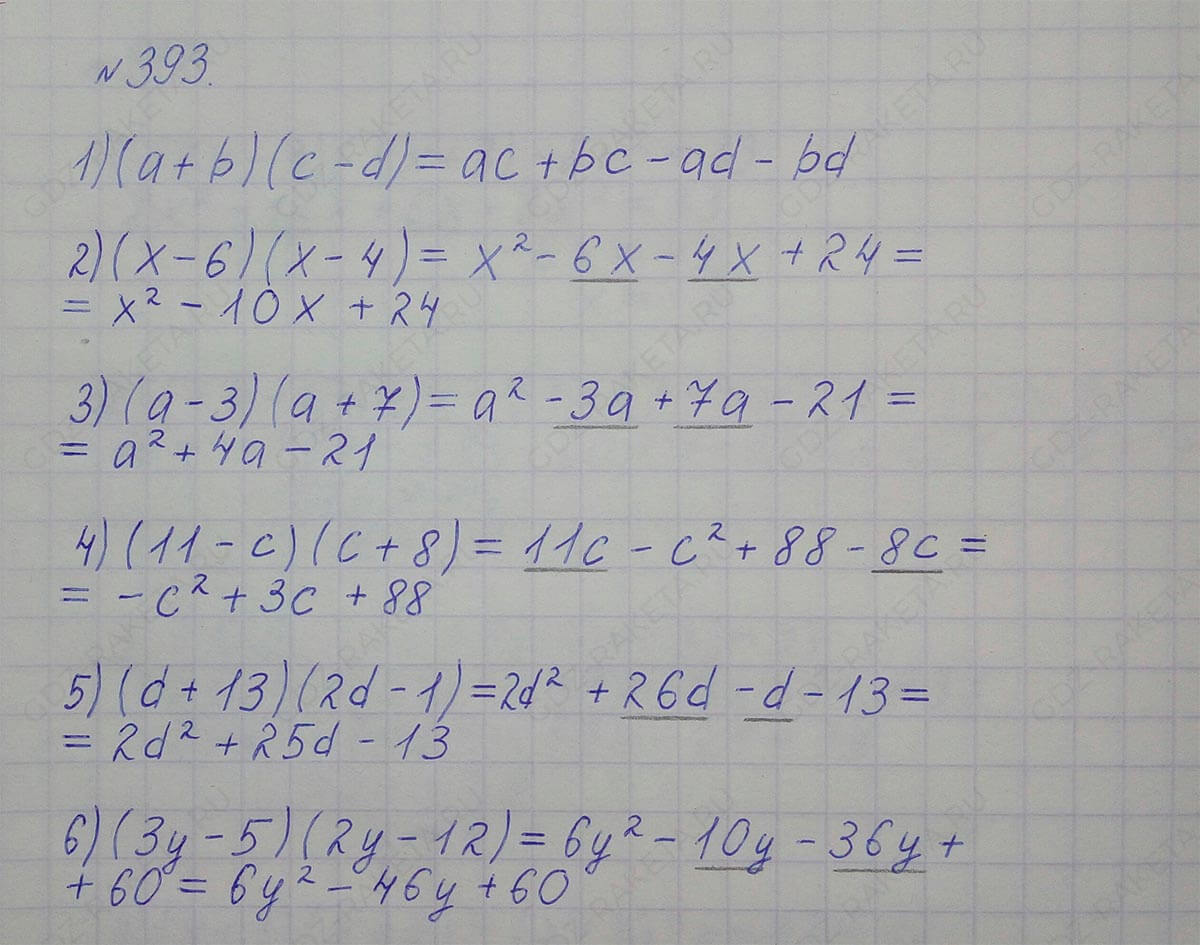 №393.
1) (a + b) (c - d) = ac + bc - ad - bd
2) (x - 6) (x - 4) = x² - 6x - 4x + 24 =
= x² - 10x + 24
3) (a - 3) (a + 7) = a² - 3a + 7a - 21 =
= a² + 4a - 21
4) (11 - c) (c + 8) = 11c - c² + 88 - 8c =
= - c² + 3c + 88
5) (d + 13) (2d - 1) = 2d² + 26d - d - 13 =
= 2d² + 25d - 13
6) (3y - 5) (2y - 12) = 6y² - 10y - 36y +
+ 60 = 6y² - 46y + 60
GDZ-RAKETA.RU